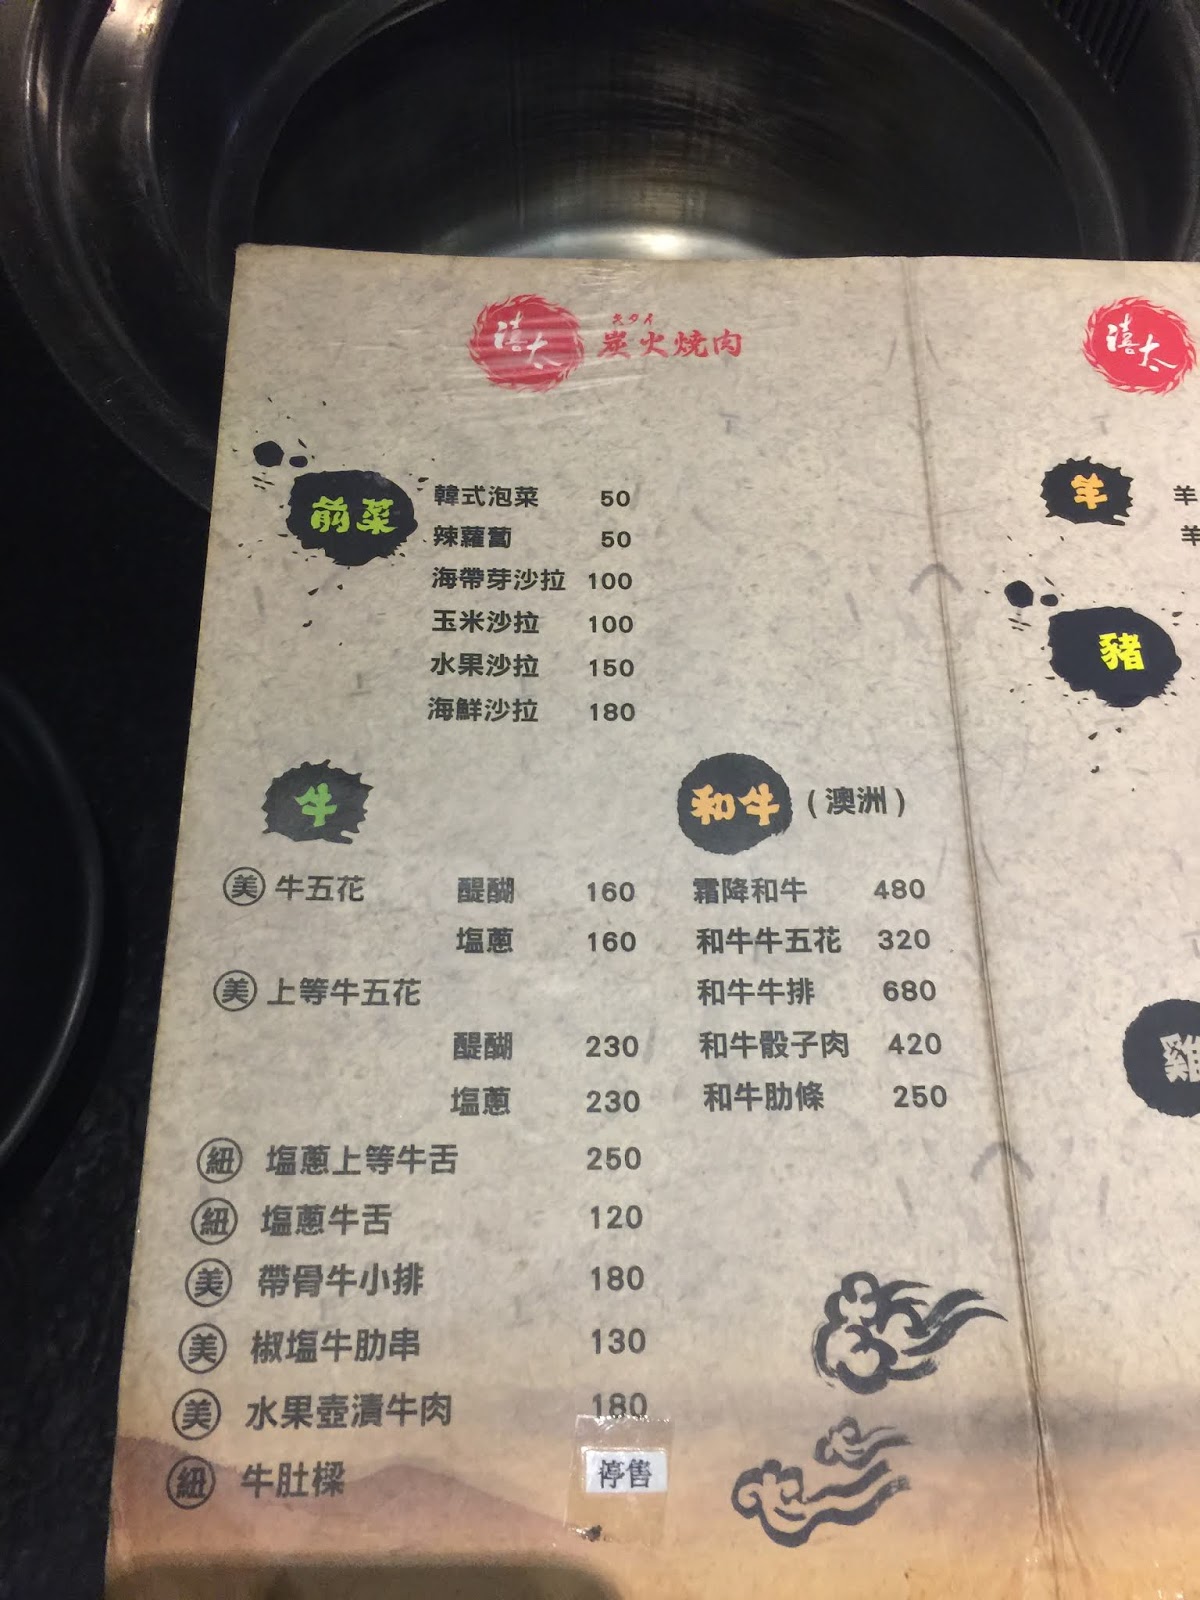 禧太 キタイ
炭火燒肉
禧太
前菜
韓式泡菜 50
辣蘿蔔 50
海帶芽沙拉 100
玉米沙拉 100
水果沙拉 150
海鮮沙拉 180
羊
羊
羊
豬
雞
牛
美 牛五花 醍醐 160
塩蔥 160
美 上等牛五花
醍醐 230
塩蔥 230
紐 塩蔥上等牛舌 250
紐 塩蔥牛舌 120
美 帶骨牛小排 180
美 椒塩牛肋串 130
美 水果壺漬牛肉 180
紐 牛肚樑 停售
和牛 (澳洲)
霜降和牛 480
和牛牛五花 320
和牛牛排 680
和牛骰子肉 420
和牛肋條 250